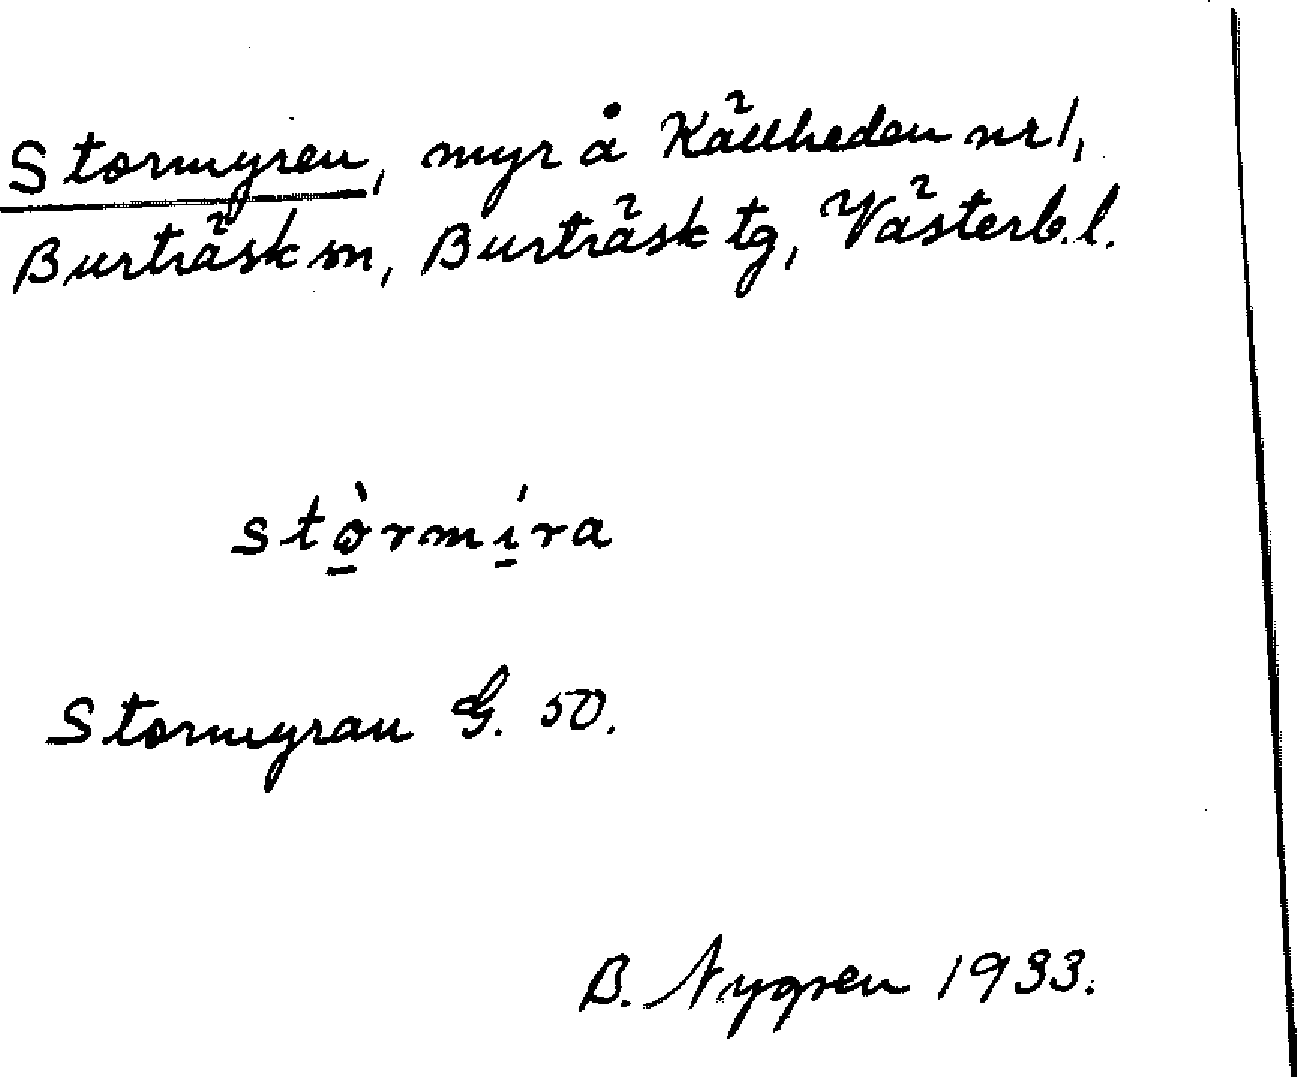 Stormyren, myr å Källheden nr 1,
Burträsk sn, Burträsk tg, Västerb. l.
stò̱rmí̱ra
Stormyran G. 50.
B. Nygren 1933.